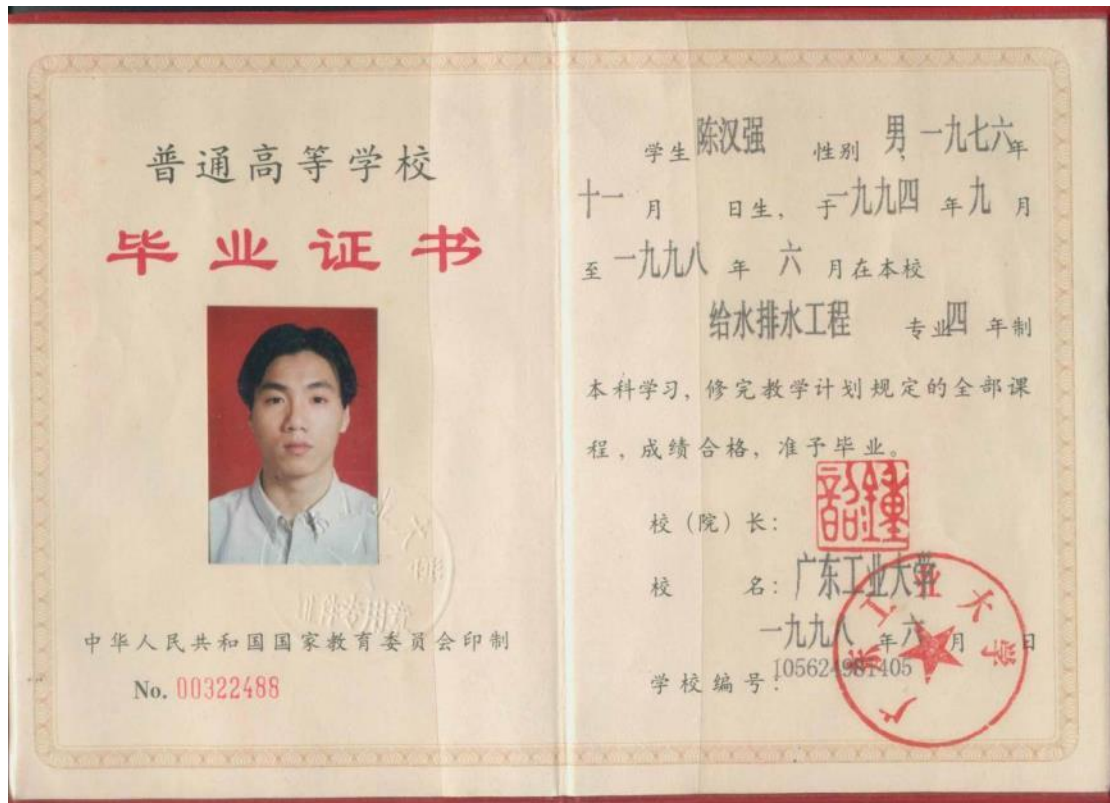 普通高等学校
毕业证书
中华人民共和国国家教育委员会印制
No. 00322488
学生 陈汉强 性别 男, 一九七六年
十一 月 日生, 于一九九四 年九 月
至 一九九八 年 六 月在本校
给水排水工程 专业四 年制
本科学习, 修完教学计划规定的全部课
程, 成绩合格, 准予毕业。
校(院)长:
校 名: 广东工业大学
一九九八 年六 月 日
学校编号:
广东工业大学